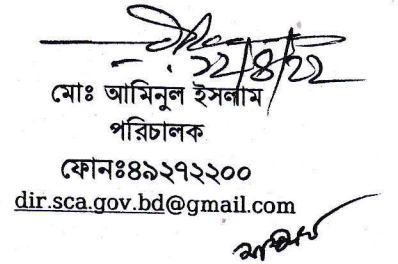 ১২/৪/২২
মোঃ আমিনুল ইসলাম
পরিচালক
ফোনঃ৪৯২৭২২০০
dir.sca.gov.bd@gmail.com